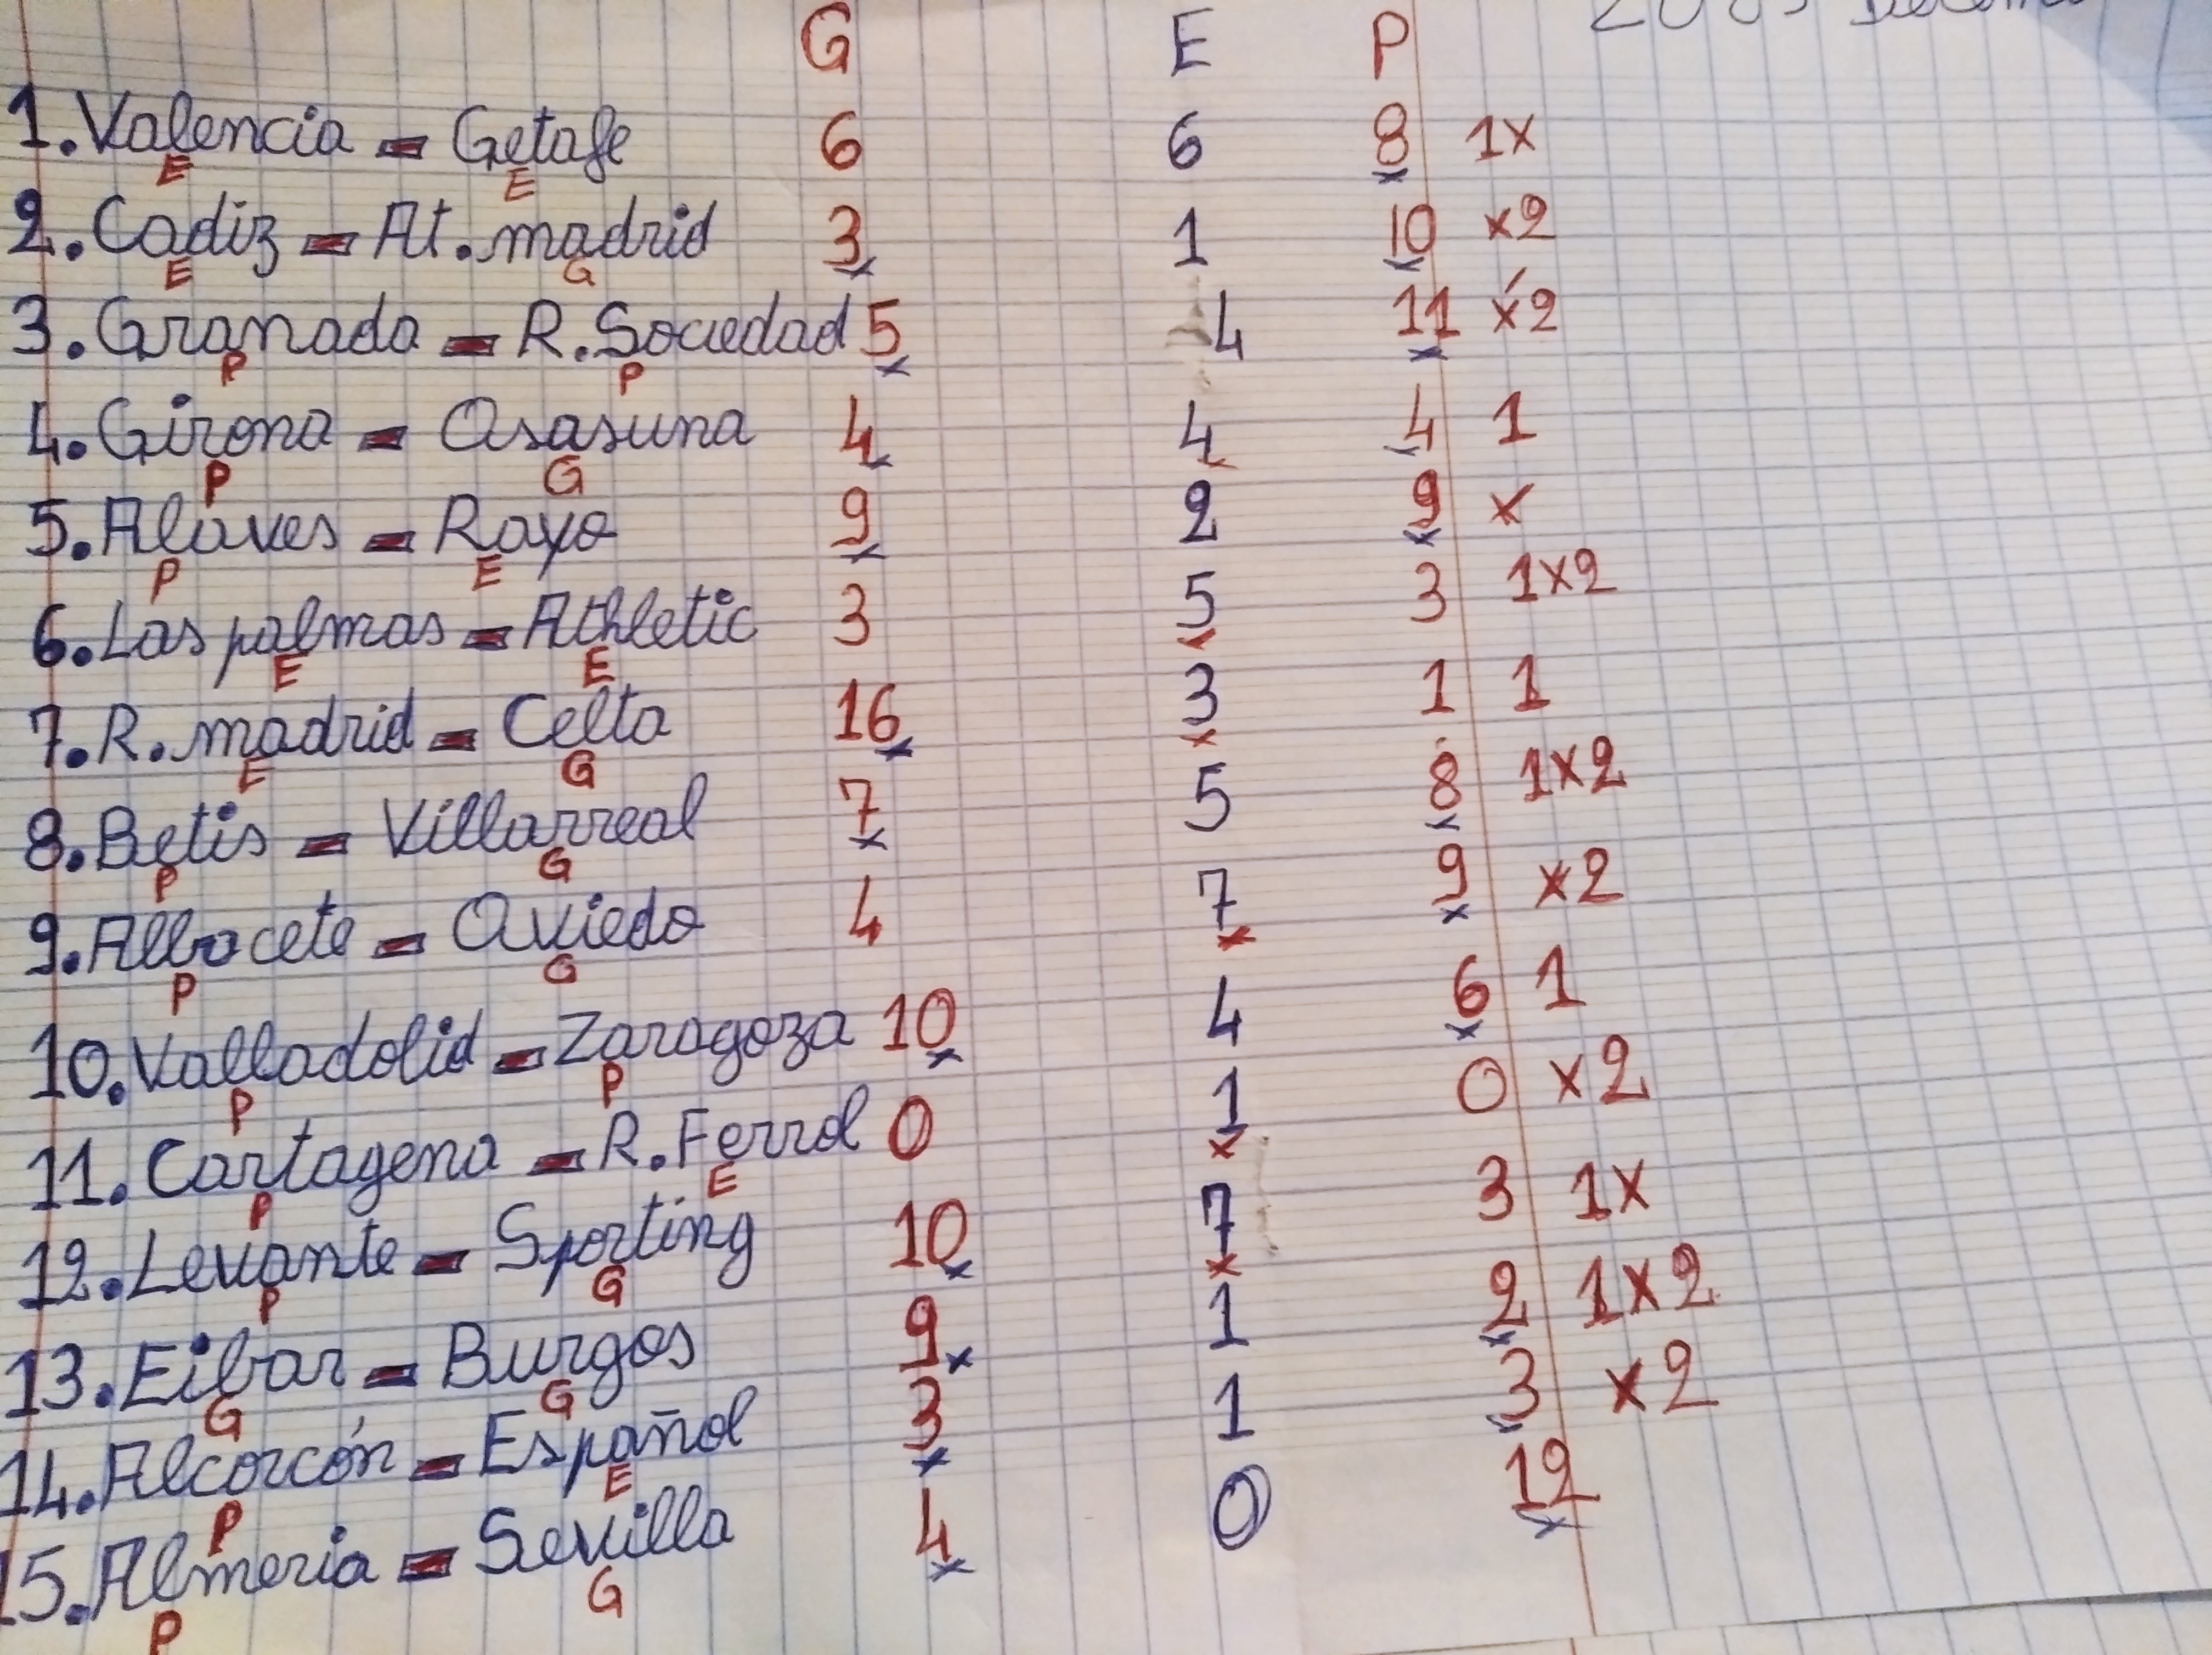 G E P
1. Valencia = Getafe 6 6 8 1x
E E
2. Cadiz = At. madrid 3 1 10 x2
E G
3. Granada = R. Sociedad 5 4 11 x2
P P
4. Girona = Osasuna 4 4 4 1
P G
5. Alaves = Rayo 9 2 9 x
P E
6. Las palmas = Athletic 3 5 3 1x2
E E
7. R. madrid = Celta 16 3 1 1
E G
8. Betis = Villarreal 7 5 8 1x2
P G
9. Albacete = Oviedo 4 7 9 x2
P G
10. Valladolid = Zaragoza 10 4 6 1
P P
11. Cartagena = R. Ferrol 0 1 0 x2
P E
12. Levante = Sporting 10 7 3 1x
P G
13. Eibar = Burgos 9 1 2 1x2
G G
14. Alcorcón = Español 3 1 3 x2
P E
15. Almeria = Sevilla 4 0 12
P G